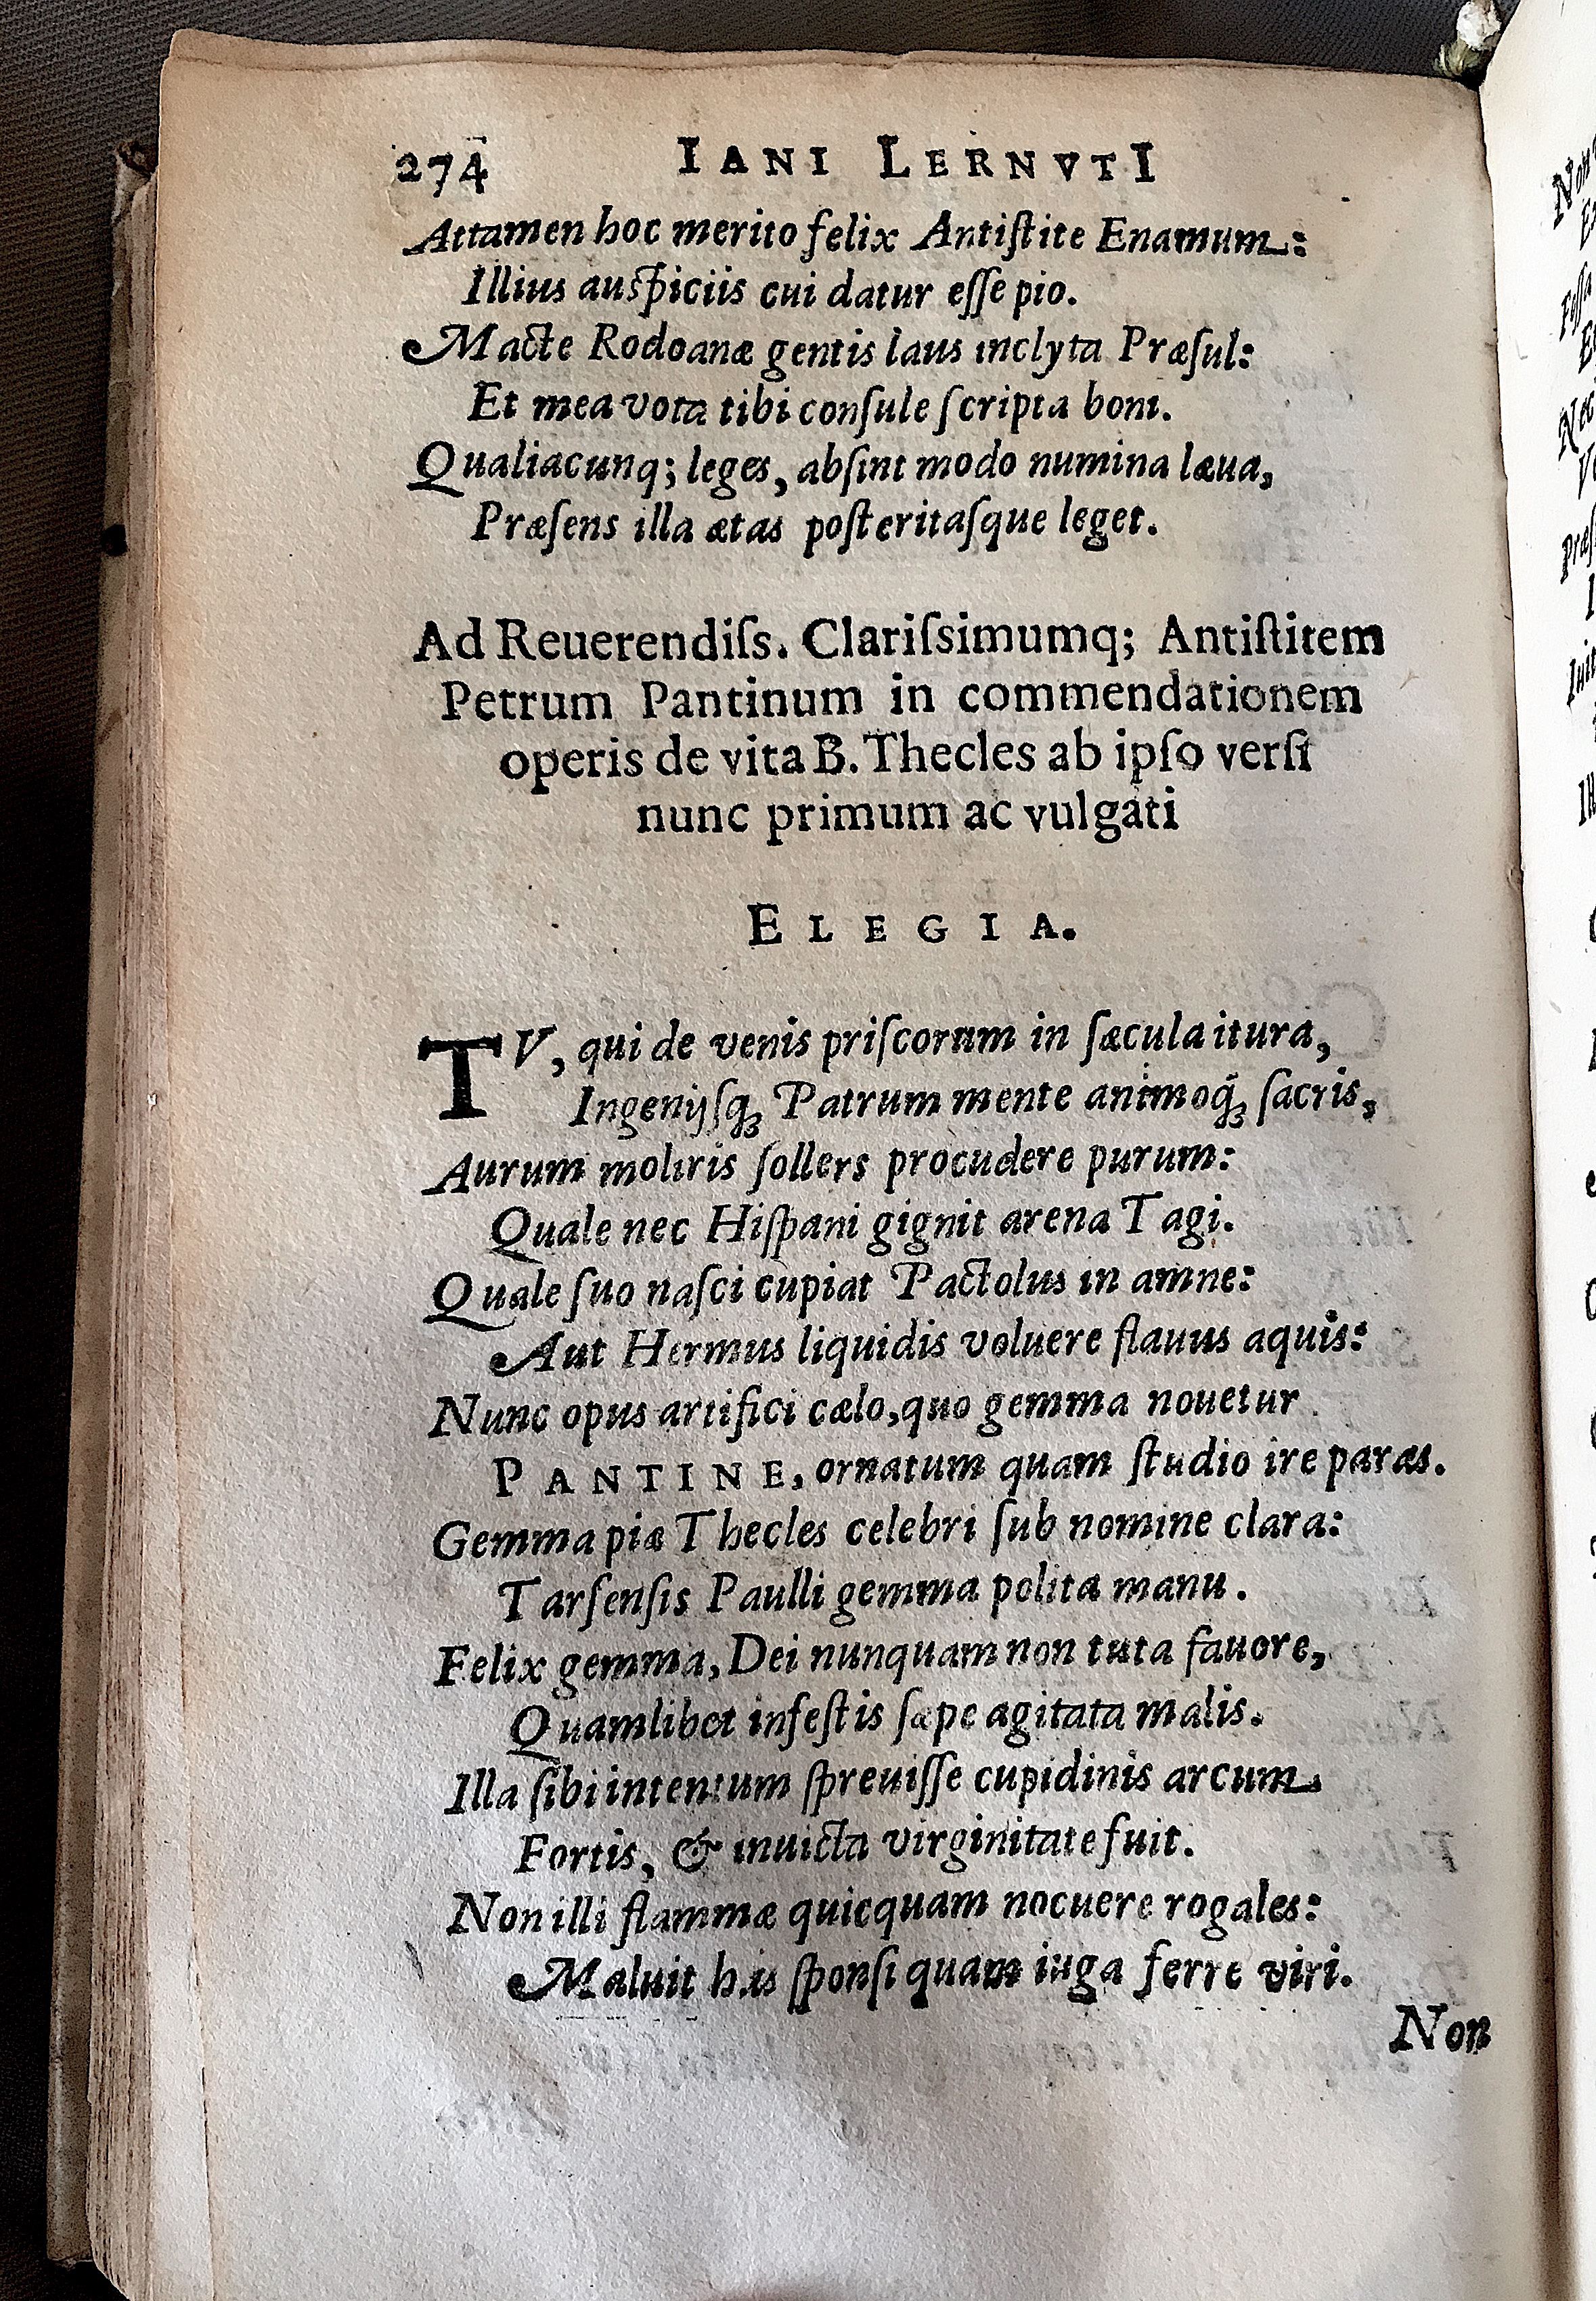 274 IANI LERNVTI
Attamen hoc merito felix Antiſtite Enamum:
Illius auſpiciis cui datur eſſe pio.
Macte Rodoanæ gentis laus inclyta Præſul:
Et mea vota tibi conſule ſcripta boni.
Qualiacunq; leges, abſint modo numina læua,
Præſens illa ætas poſteritaſque leget.
Ad Reuerendiſs. Clariſsimumq; Antiſtitem
Petrum Pantinum in commendationem
operis de vita B. Thecles ab ipſo verſi
nunc primum ac vulgati
ELEGIA.
TV, qui de venis priſcorum in ſæcula itura,
Ingenijſq́ꝫ Patrum mente animoq́ꝫ ſacris,
Aurum moliris ſollers procudere purum:
Quale nec Hiſpani gignit arena Tagi.
Quale ſuo naſci cupiat Pactolus in amne:
Aut Hermus liquidis voluere flauus aquis:
Nunc opus artifici cælo, quo gemma nouetur
PANTINE, ornatum quam ſtudio ire paras.
Gemma piæ Thecles celebri ſub nomine clara:
Tarſenſis Paulli gemma polita manu.
Felix gemma, Dei nunquam non tuta fauore,
Quamlibet infeſtis ſæpe agitata malis.
Illa ſibi intentum ſpreuiſſe cupidinis arcum
Fortis, & inuicta virginitate fuit.
Non illi flammæ quicquam nocuere rogales:
Maluit his ſponſi quam iuga ferre viri.
Non